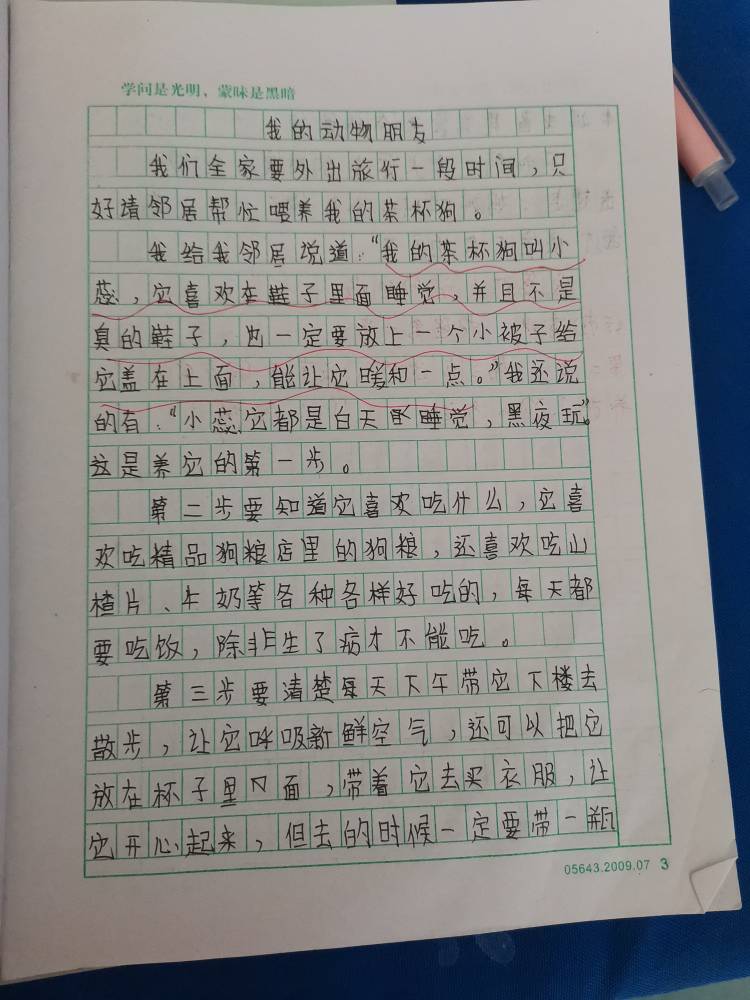 学问是光明，蒙昧是黑暗
我的动物朋友
我们全家要外出旅行一段时间，只
好请邻居帮忙喂养我的茶杯狗。
我给我邻居说道：“我的茶杯狗叫小
蕊，它喜欢在鞋子里面睡觉，并且不是
臭的鞋子，也一定要放上一个小被子给
它盖在上面，能让它暖和一点。”我还说
的有：“小蕊它都是白天睡觉，黑夜玩”。
这是养它的第一步。
第二步要知道它喜欢吃什么，它喜
欢吃精品狗粮店里的狗粮，还喜欢吃山
楂片、牛奶等各种各样好吃的，每天都
要吃饭，除非生了病才不能吃。
第三步要清楚每天下午带它下楼去
散步，让它呼吸新鲜空气，还可以把它
放在杯子里面，带着它去买衣服，让
它开心起来，但去的时候一定要带一瓶
05643.2009.07 3